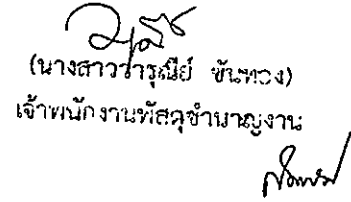 (นางสาววารุณีย์ ขันทอง)
เจ้าพนักงานพัสดุชำนาญงาน